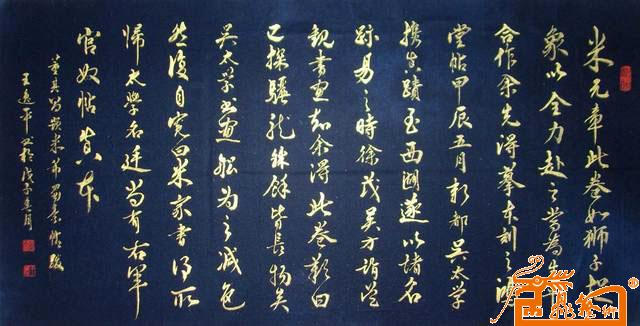 米元章此卷如狮子捉
象以全力赴之当为生
合作余先得摹本刻之鸿
堂帖甲辰五月新都吴太学
携真蹟至西湖遂以诸名
跡易之时徐茂吴方诣吴
观书画知余得此卷叹曰
已探骊龙珠余皆长物矣
吴太学书画船为之减色
然后自宽曰米家书得所
归太学名廷尚有右军
官奴帖真本
董其昌题米芾蜀素帖跋